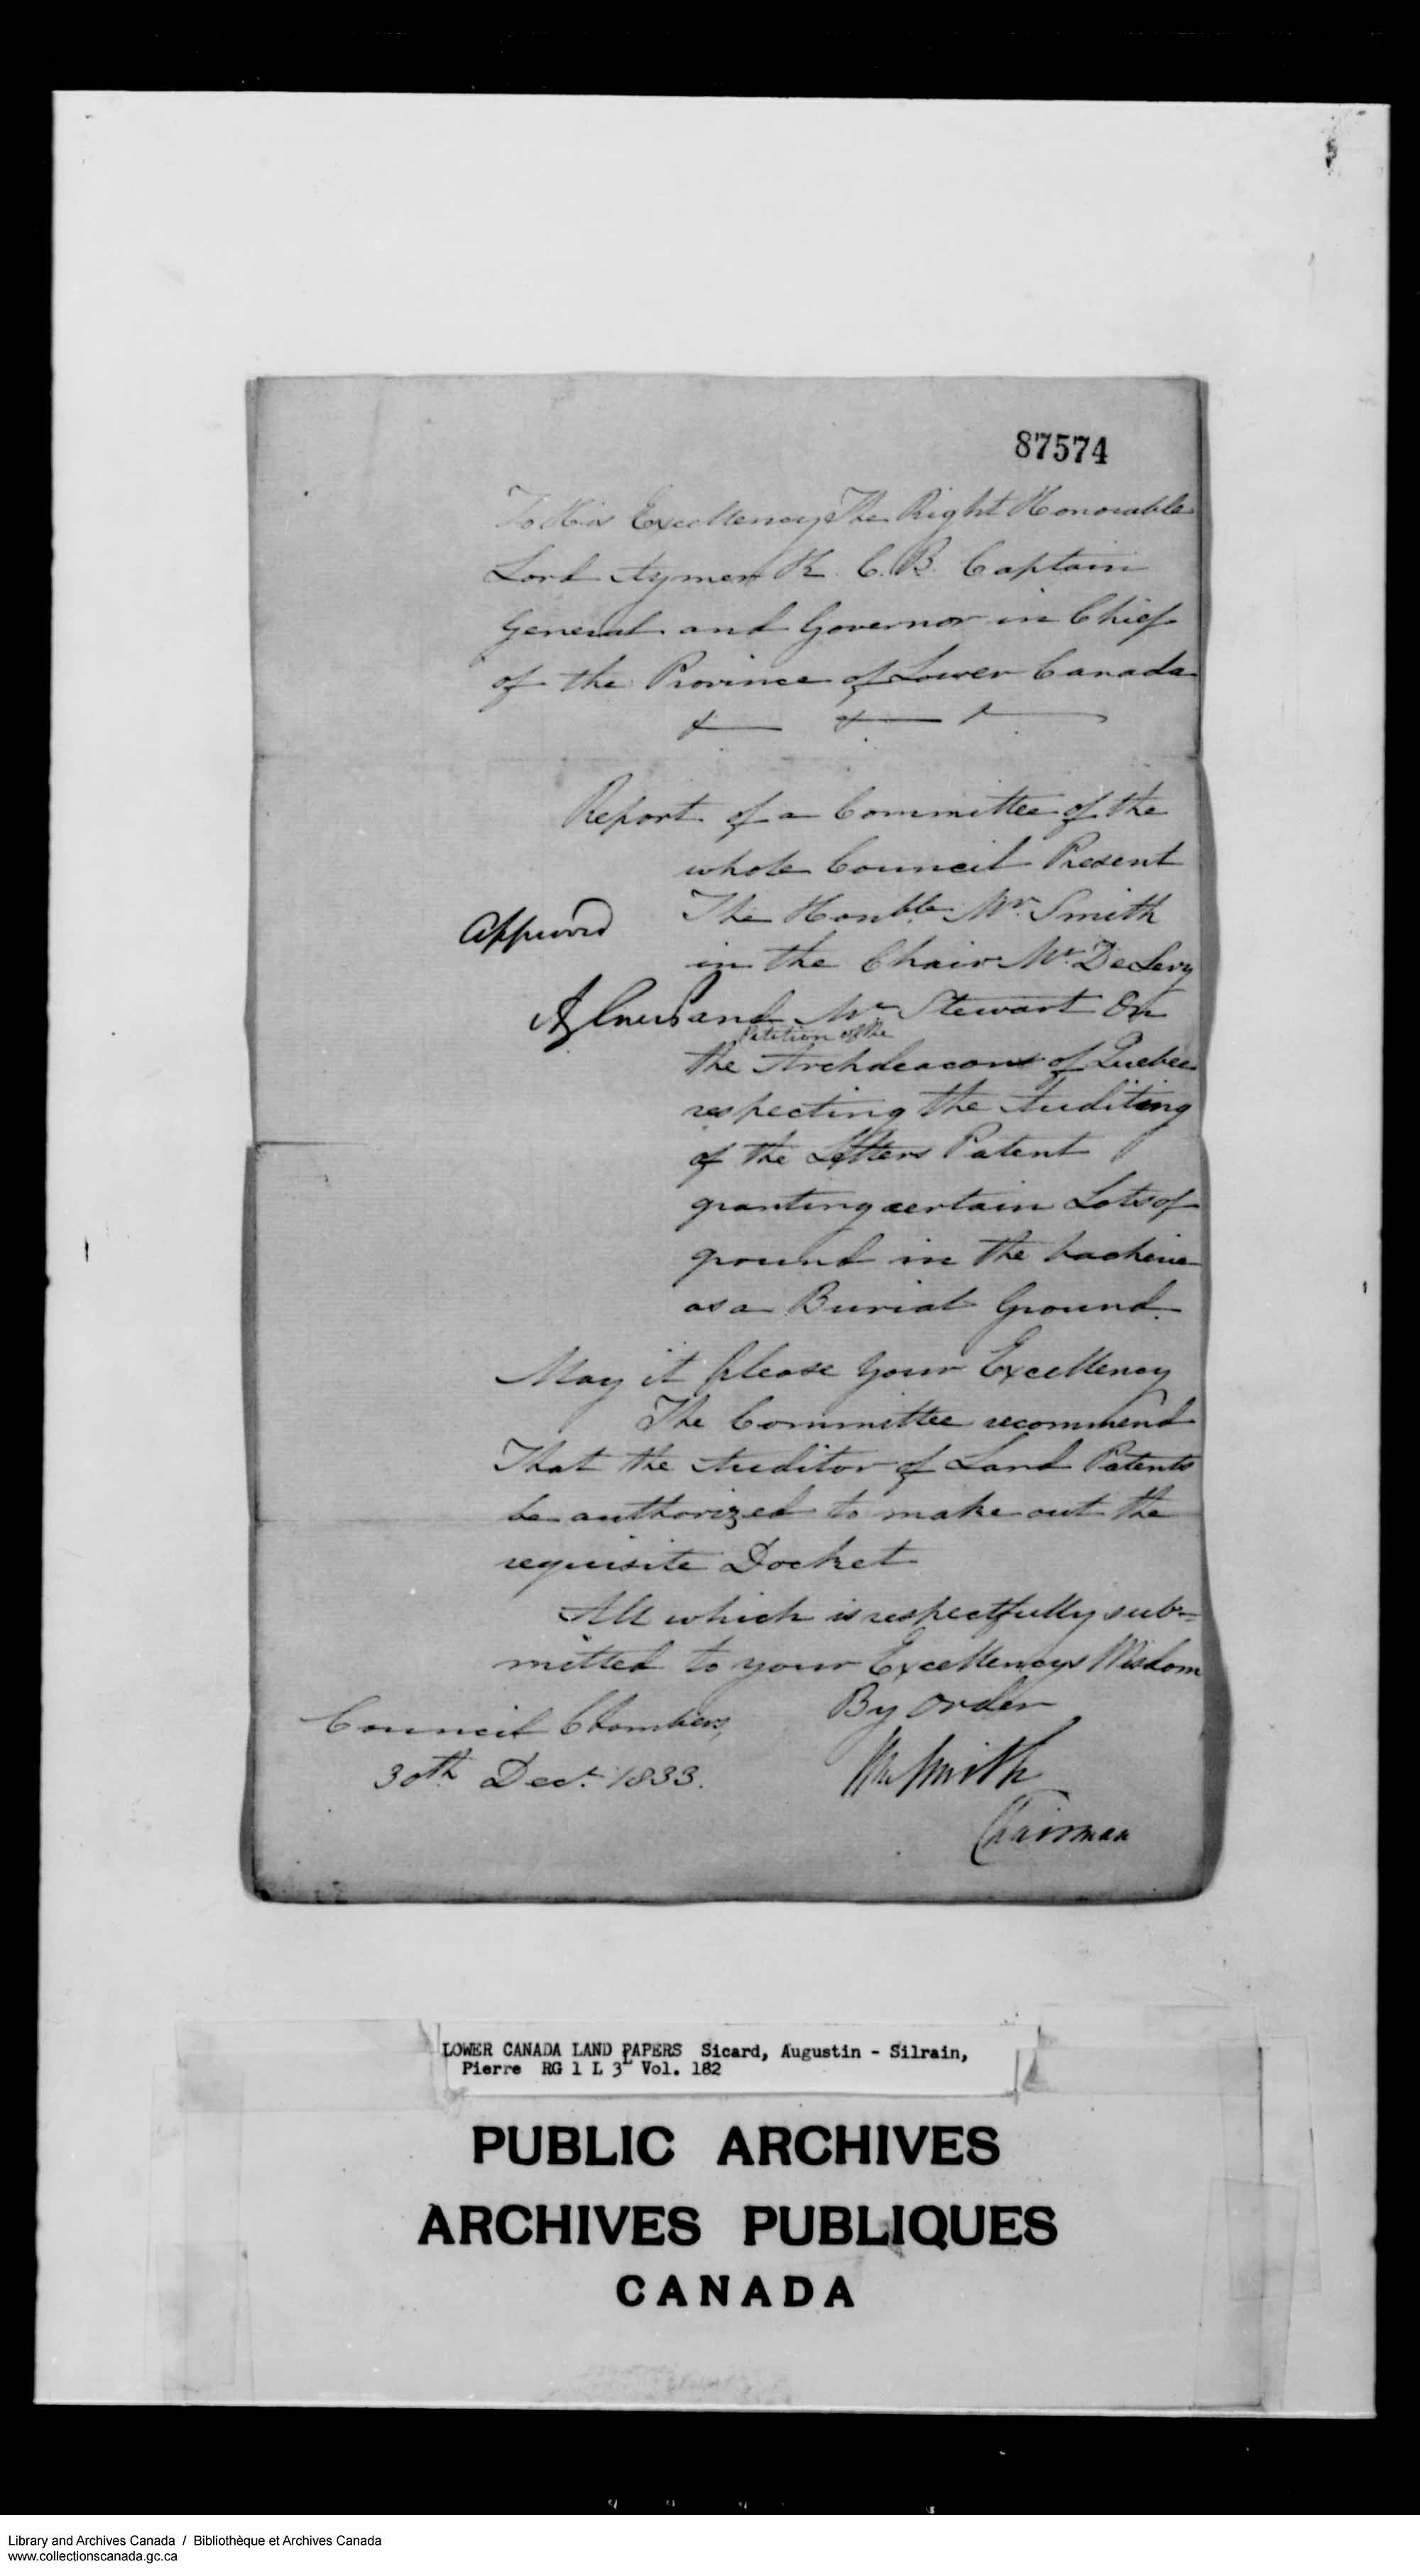 87574
To His Excellency The Right Honorable
Lord Aymer K. C. B. Captain
General and Governor in Chief
of the Province of Lower Canada
Report of a Committee of the
whole Council Present
The Honble. Mr. Smith
Approved
in the Chair Mr. DeLery
and Mr Stewart On
Petition of the
the Archdeacon of Quebec
respecting the Auditing
of the Letters Patent
granting certain Lots of
ground in the
as a Burial Ground.
May it please Your Excellency
The Committee recommend
That the Auditor of Land Patents
be authorized to make out the
requisite Docket
All which is respectfully sub=
mitted to your Excellencys Wisdom
By order
Council Chambers,
30th Decr. 1833.
Wm Smith
Chairman
LOWER CANADA LAND PAPERS Sicard, Augustin - Silrain,
Pierre RG 1 L 3L Vol. 182
PUBLIC ARCHIVES
ARCHIVES PUBLIQUES
CANADA
Library and Archives Canada / Bibliothèque et Archives Canada
www.collectionscanada.gc.ca